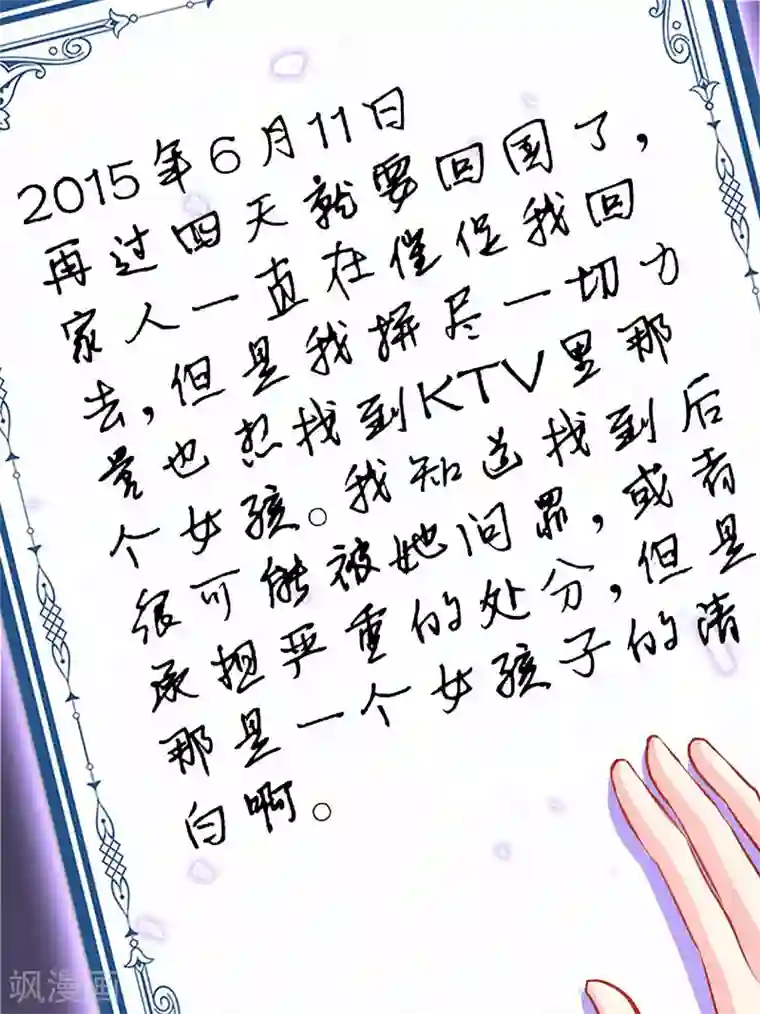 2015年6月11日
再过四天就要回国了，
家人一直在催促我回
去，但是我拼尽一切力
量也想找到KTV里那
个女孩。我知道找到后
很可能被她问罪，或者
承担严重的处分，但是
那是一个女孩子的清
白啊。
飒漫画